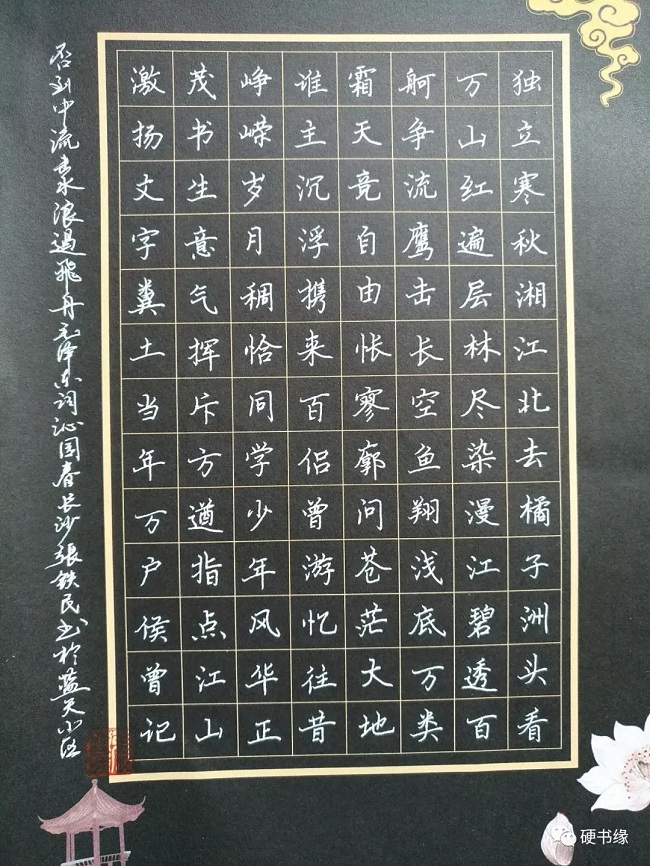 独立寒秋湘江北去橘子洲头看
万山红遍层林尽染漫江碧透百
舸争流鹰击长空鱼翔浅底万类
霜天竞自由怅寥廓问苍茫大地
谁主沉浮携来百侣曾游忆往昔
峥嵘岁月稠恰同学少年风华正
茂书生意气挥斥方遒指点江山
激扬文字粪土当年万户侯曾记
否到中流击水浪遏飛舟毛泽东词沁园春长沙張鉄民书於蓝天小区
硬书缘